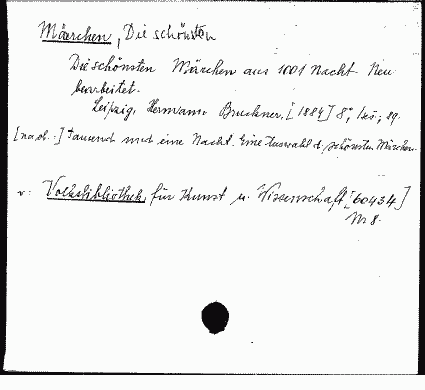 Märchen, Die schönsten
Die schönsten Märchen aus 1001 Nacht. Neu
bearbeitet.
Leipzig, Hermann Bruckner, [1884] 8°,
Tausend und eine Nacht. Eine Auswahl d. schönsten Märchen.
v: Volksbibliothek für Kunst u. Wissenschaft [60434]
Nr 8.